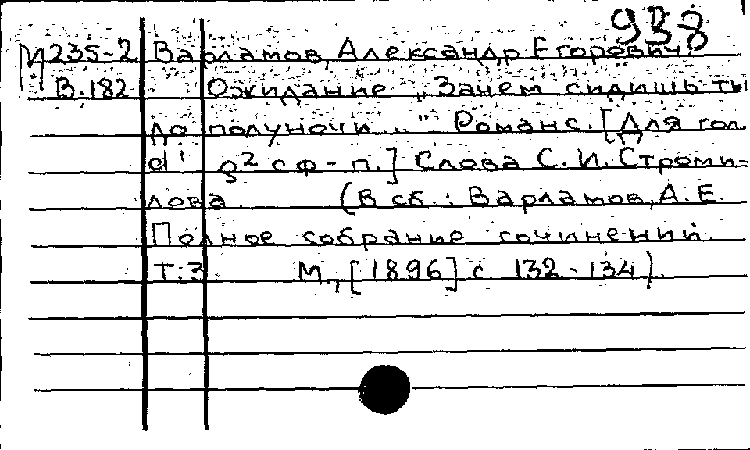 938
М 235-2 Варламов, Александр Егорович
В.182 Ожидание „Зачем сидишь ты
до полуночи..." Романс. [Для гол.
d¹ g² с ф-п.] Слова С. И. Строми-
лова (В сб.: Варламов, А. Е.
Полное собрание сочинений.
Т. 3 М., [1896] с 132-134).